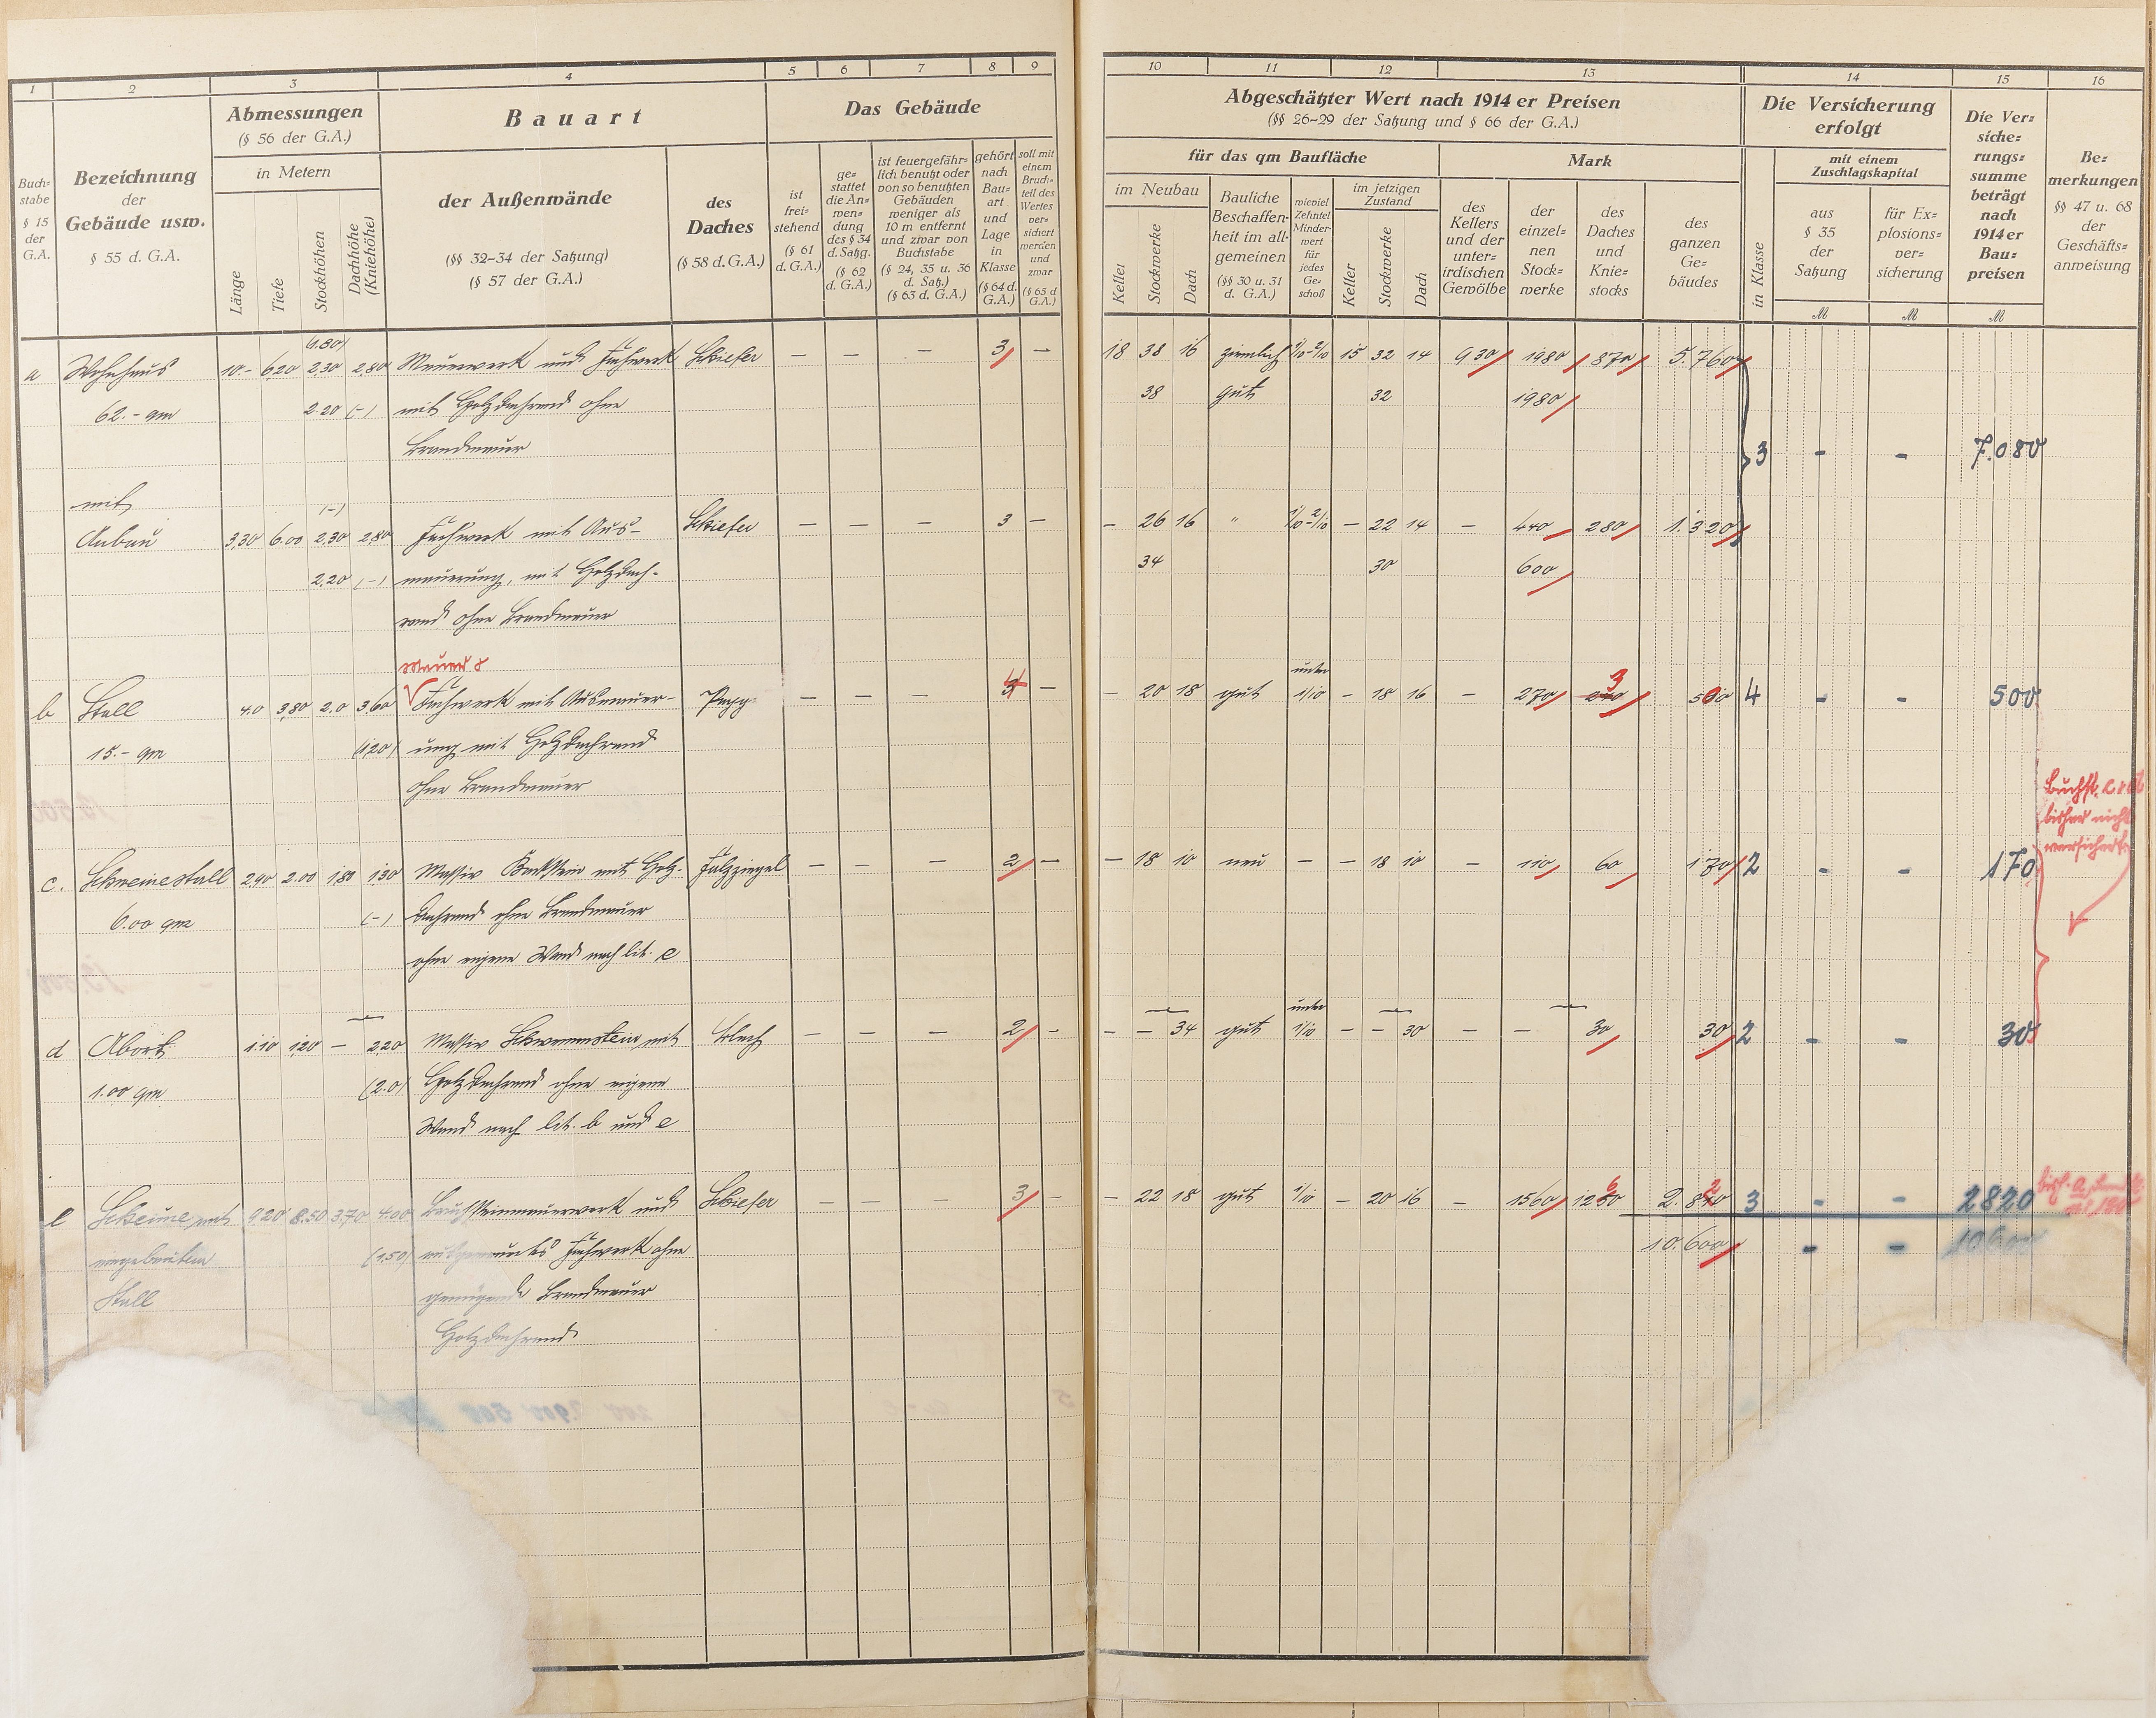 1 2 3 4 5 6 7 8 9
Buch=
stabe
§ 15
der
G.A.
Bezeichnung
der
Gebäude usw.
§ 55 d. G.A.
Abmessungen
(§ 56 der G.A.)
in Metern
Länge
Tiefe
Stockhöhen
Dachhöhe
(Kniehöhe)
Bauart
der Außenwände
(§§ 32–34 der Satzung)
(§ 57 der G.A.)
des
Daches
(§ 58 d. G.A.)
Das Gebäude
ist
frei=
stehend
(§ 61
d. G.A.)
ge=
stattet
die An=
wen=
dung
des § 34
d. Satzg.
(§ 62
d. G.A.)
ist feuergefähr=
lich benutzt oder
von so benutzten
Gebäuden
weniger als
10 m entfernt
und zwar von
Buchstabe
(§ 24, 35 u. 36
d. Satz.)
(§ 63 d. G.A.)
gehört
nach
Bau=
art
und
Lage
in
Klasse
(§ 64 d.
G.A.)
soll mit
einem
Bruch=
teil des
Wertes
ver=
sichert
werden
und
zwar
(§ 65 d.
G.A.)
6.80)
a Wohnhaus 10.- 6,20 2,30 2,80 Mauerwerk und Fachwerk Schiefer – – – 3 –
62.- qm 2.20 (-) mit Holzdachrand ohne
Brandmauer
mit (-)
Anbau 3,30 6.00 2,30 2,80 Fachwerk mit Aus- Schiefer – – – 3 –
2,20 (-) mauerung, mit Holzdach-
rand ohne Brandmauer
Mauer &
b Stall 4.0 3,80 2,0 3,60 Fachwerk mit Ausmauer- Papp – – – 4 –
15.- qm (1,20) ung mit Holzdachrand
ohne Brandmauer
c. Schweinestall 2,90 2.00 1,80 1,30 Massiv Backstein mit Holz- Falzziegel – – – 2 –
6.00 qm (-) dachrand ohne Brandmauer
ohne eigene Wand nach lit. e
d Abort 1.10 1,20 – 2,20 Massiv Schwemmstein mit Blech – – – 2 –
1.00 qm (2.0) Holzdachrand ohne eigene
Wand nach lit. b und e
e Scheune mit 9,20 8.50 3,70 4.00 Bruchsteinmauerwerk und Schiefer – – – 3 –
eingebautem (1,50) Fachwerk ohne
Stall genügende Brandmauer
Holzdachrand
10 11 12 13 14 15 16
Abgeschätzter Wert nach 1914 er Preisen
(§§ 26–29 der Satzung und § 66 der G.A.)
für das qm Baufläche
Mark
im Neubau
Keller
Stockwerke
Dach
Bauliche
Beschaffen=
heit im all=
gemeinen
(§§ 30 u. 31
d. G.A.)
wieviel
Zehntel
Minder=
wert
für
jedes
Ge=
schoß
im jetzigen
Zustand
Keller
Stockwerke
Dach
des
Kellers
und der
unter=
irdischen
Gewölbe
der
einzel=
nen
Stock=
werke
des
Daches
und
Knie=
stocks
des
ganzen
Ge=
bäudes
Die Versicherung
erfolgt
in Klasse
mit einem
Zuschlagskapital
aus
§ 35
der
Satzung
M
für Ex=
plosions=
ver=
sicherung
M
Die Ver=
siche=
rungs=
summe
beträgt
nach
1914 er
Bau=
preisen
M
Be=
merkungen
§§ 47 u. 68
der
Geschäfts=
anweisung
18 38 16 ziemlich 1/10-2/10 15 32 14 930 1980 870 5.760
38 gut 32 1980
3 – – 7.080
– 26 16 " 1/10-2/10 – 22 14 – 440 280 1.320
34 30 600
unter
– 20 18 gut 1/10 – 18 16 – 270 3 500 4 – – 500
Buchst. c u d
bisher nicht
versichert
– 18 10 neu – – 18 10 – 110 60 170 2 – – 170
unter
– – 34 gut 1/10 – – 30 – – 30 30 2 – – 30
– 22 18 gut 1/10 – 20 16 – 1560 1260 2.820 3 – – 2820
10.600 – – 10600